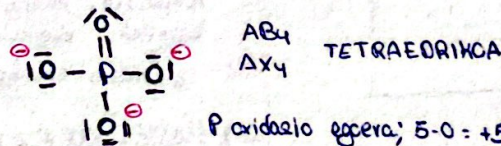 O
⊖ ⊖
O – P – O
⊖
O
AB4
AX4
TETRAEDRIKOA
P oxidazio egoera; 5-0 = +5